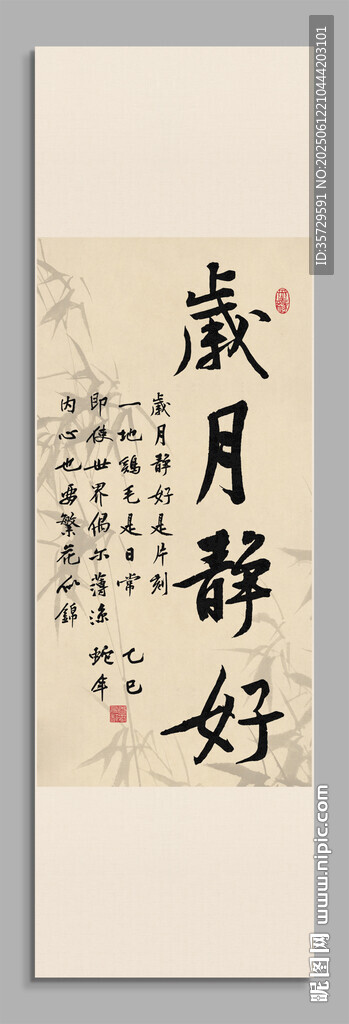 歲月静好
歲月静好是片刻
一地鷄毛是日常
即使世界偶尔薄涼
内心也要繁花似錦
乙巳
蛇年
ID:35729591 NO:20250612210444203101
昵图网 www.nipic.com